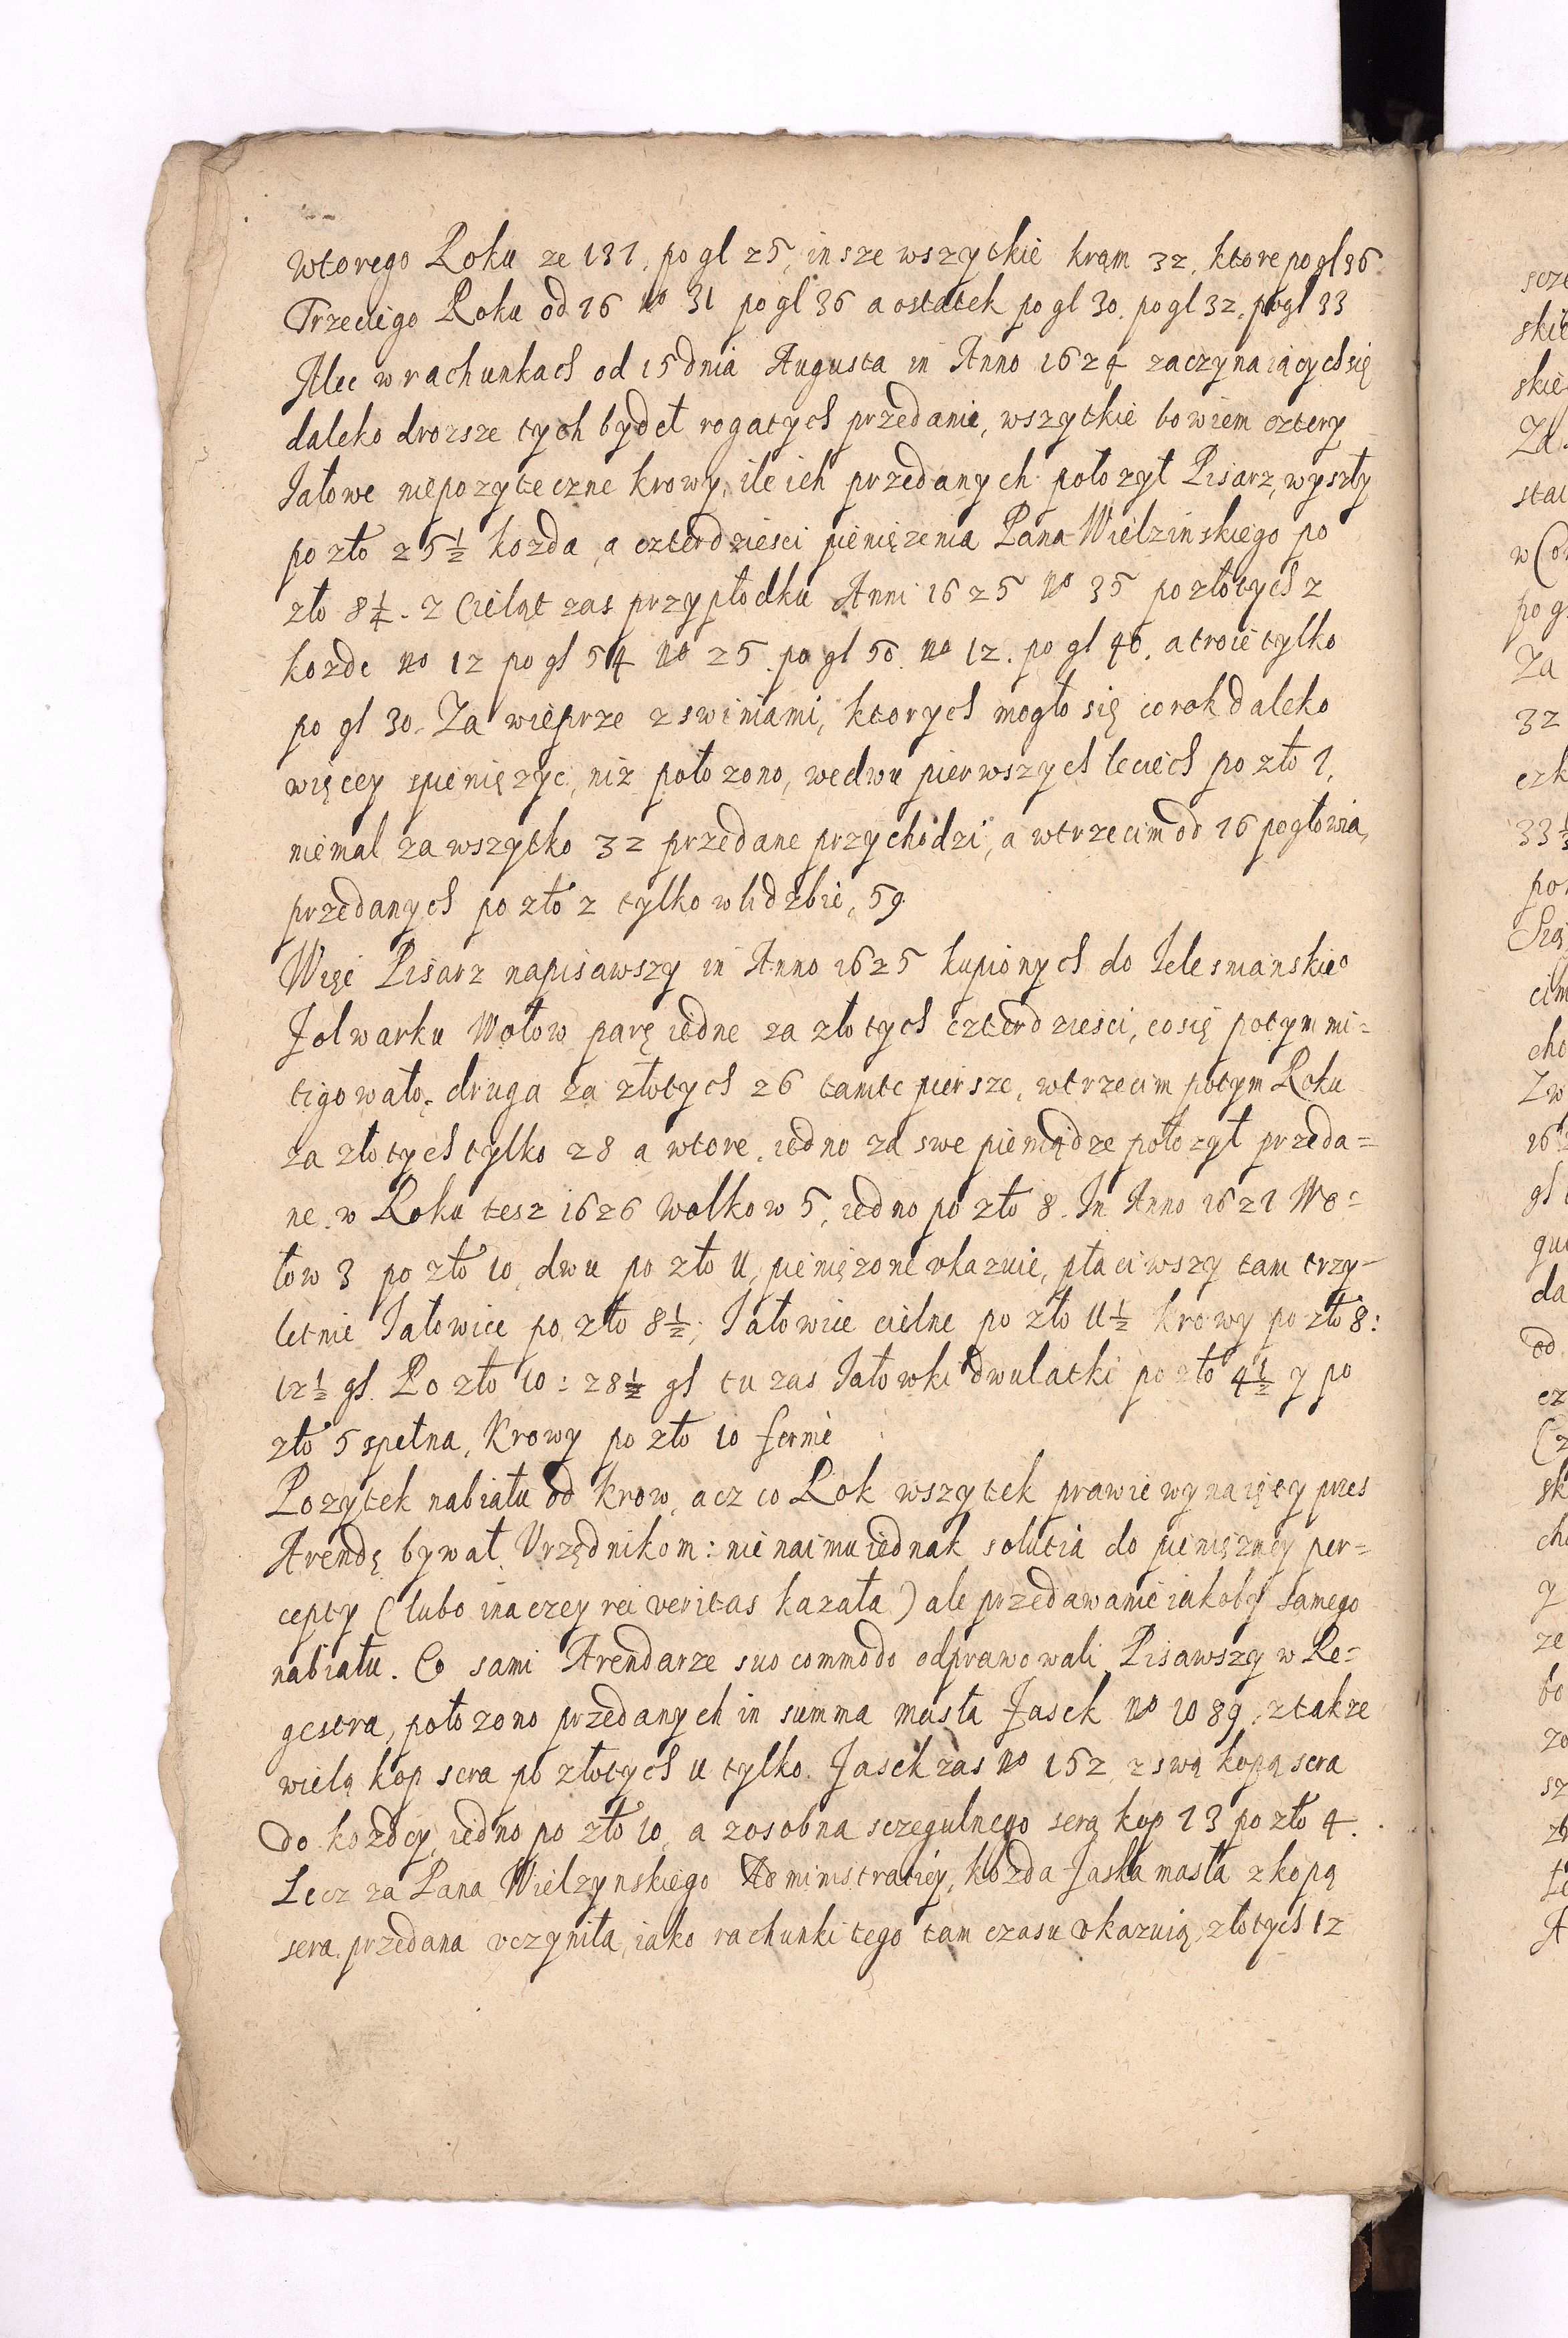 wtorego Roku ze 137. po gl 25, insze wszytkie kram 32. ktore po gl 36.
Trzeciego Roku od 76 No 31 po gl 36 a ostatek po gl 30. po gl 32. po gl 33
Alec w rachunkach od 15 dnia Augusta in Anno 1624 zaczynaiących się
daleko drozsze tych bydeł rogatych przedanie, wszytkie bowiem cztery
Iałowe niepozyteczne krowy, ile ich przedanych położył Pisarz, wyszły
po zło 25½ kozda, a czterdziesci pieniężenia Pana Wielzinskiego po
zło 8¼. Z Cieląt zas przypłodku Anni 1625 No 35 po złotych 2
kozde No 12 po gl 54 No 25. po gl 50. No 12. po gl 40. a troie tylko
po gl 30. Za wieprze z swiniami, ktorych mogło się co rok daleko
więcey spieniężyc, niz położono, we dwu pierwszych leciech po zło 7,
niemal za wszytko 32 przedane przychodzi, a w trzecim od 76 pogłowia,
przedanych po zło 2 tylko w lidzbie, 59.
Więc Pisarz napisawszy in Anno 1625 kupionych do Ielesnianskieo
Folwarku Wołow parę iedne za złotych czterdziesci, co się potym mi=
tigowało, druga za złotych 26 tamte piersze, w trzecim potym Roku
za złotych tylko 28 a wtore, iedno za swe pieniądze położył przeda=
ne. w Roku tesz 1626 Wolkow 5, iedno po zło 8. In Anno 1627 Wo=
łow 3 po zło 10, dwu po zło 11, pieniężone vkazuie, płaciwszy tam trzy=
letnie Iałowice po zło 8½; Iałowice cielne po zło 11½ Krowy po zło 8:
12½ gl. Po zło 10: 28½ gl tu zas Iałowki dwulatki po zło 4½ y po
zło 5 spełna, Krowy po zło 10 ferme
Pozytek nabiału od krow, acz co Rok wszytek prawie wynaięty przes
Arendę bywał Vrzędnikom: nie naimu iednak solutia do pieniężney per=
cepty (lubo inaczey rei veritas kazała) ale przedawanie iakoby samego
nabiału. Co sami Arendarze suo commodo odprawowali, Pisawszy w Re=
gestra, położono przedanych in summa masła Fasek No 1089. z takze
wielą kop sera po złotych 11 tylko. Fasek zas No 152 z swą kopą sera
do kozdey, iedno po zło 10, a zosobna szczegulnego sera kop 73 po zło 4.
Lecz za Pana Wielzynskiego Administratiey, kozda Faska masła z kopą
sera przedana vczyniła, iako rachunki tego tam czasu vkazuią, złotych 12